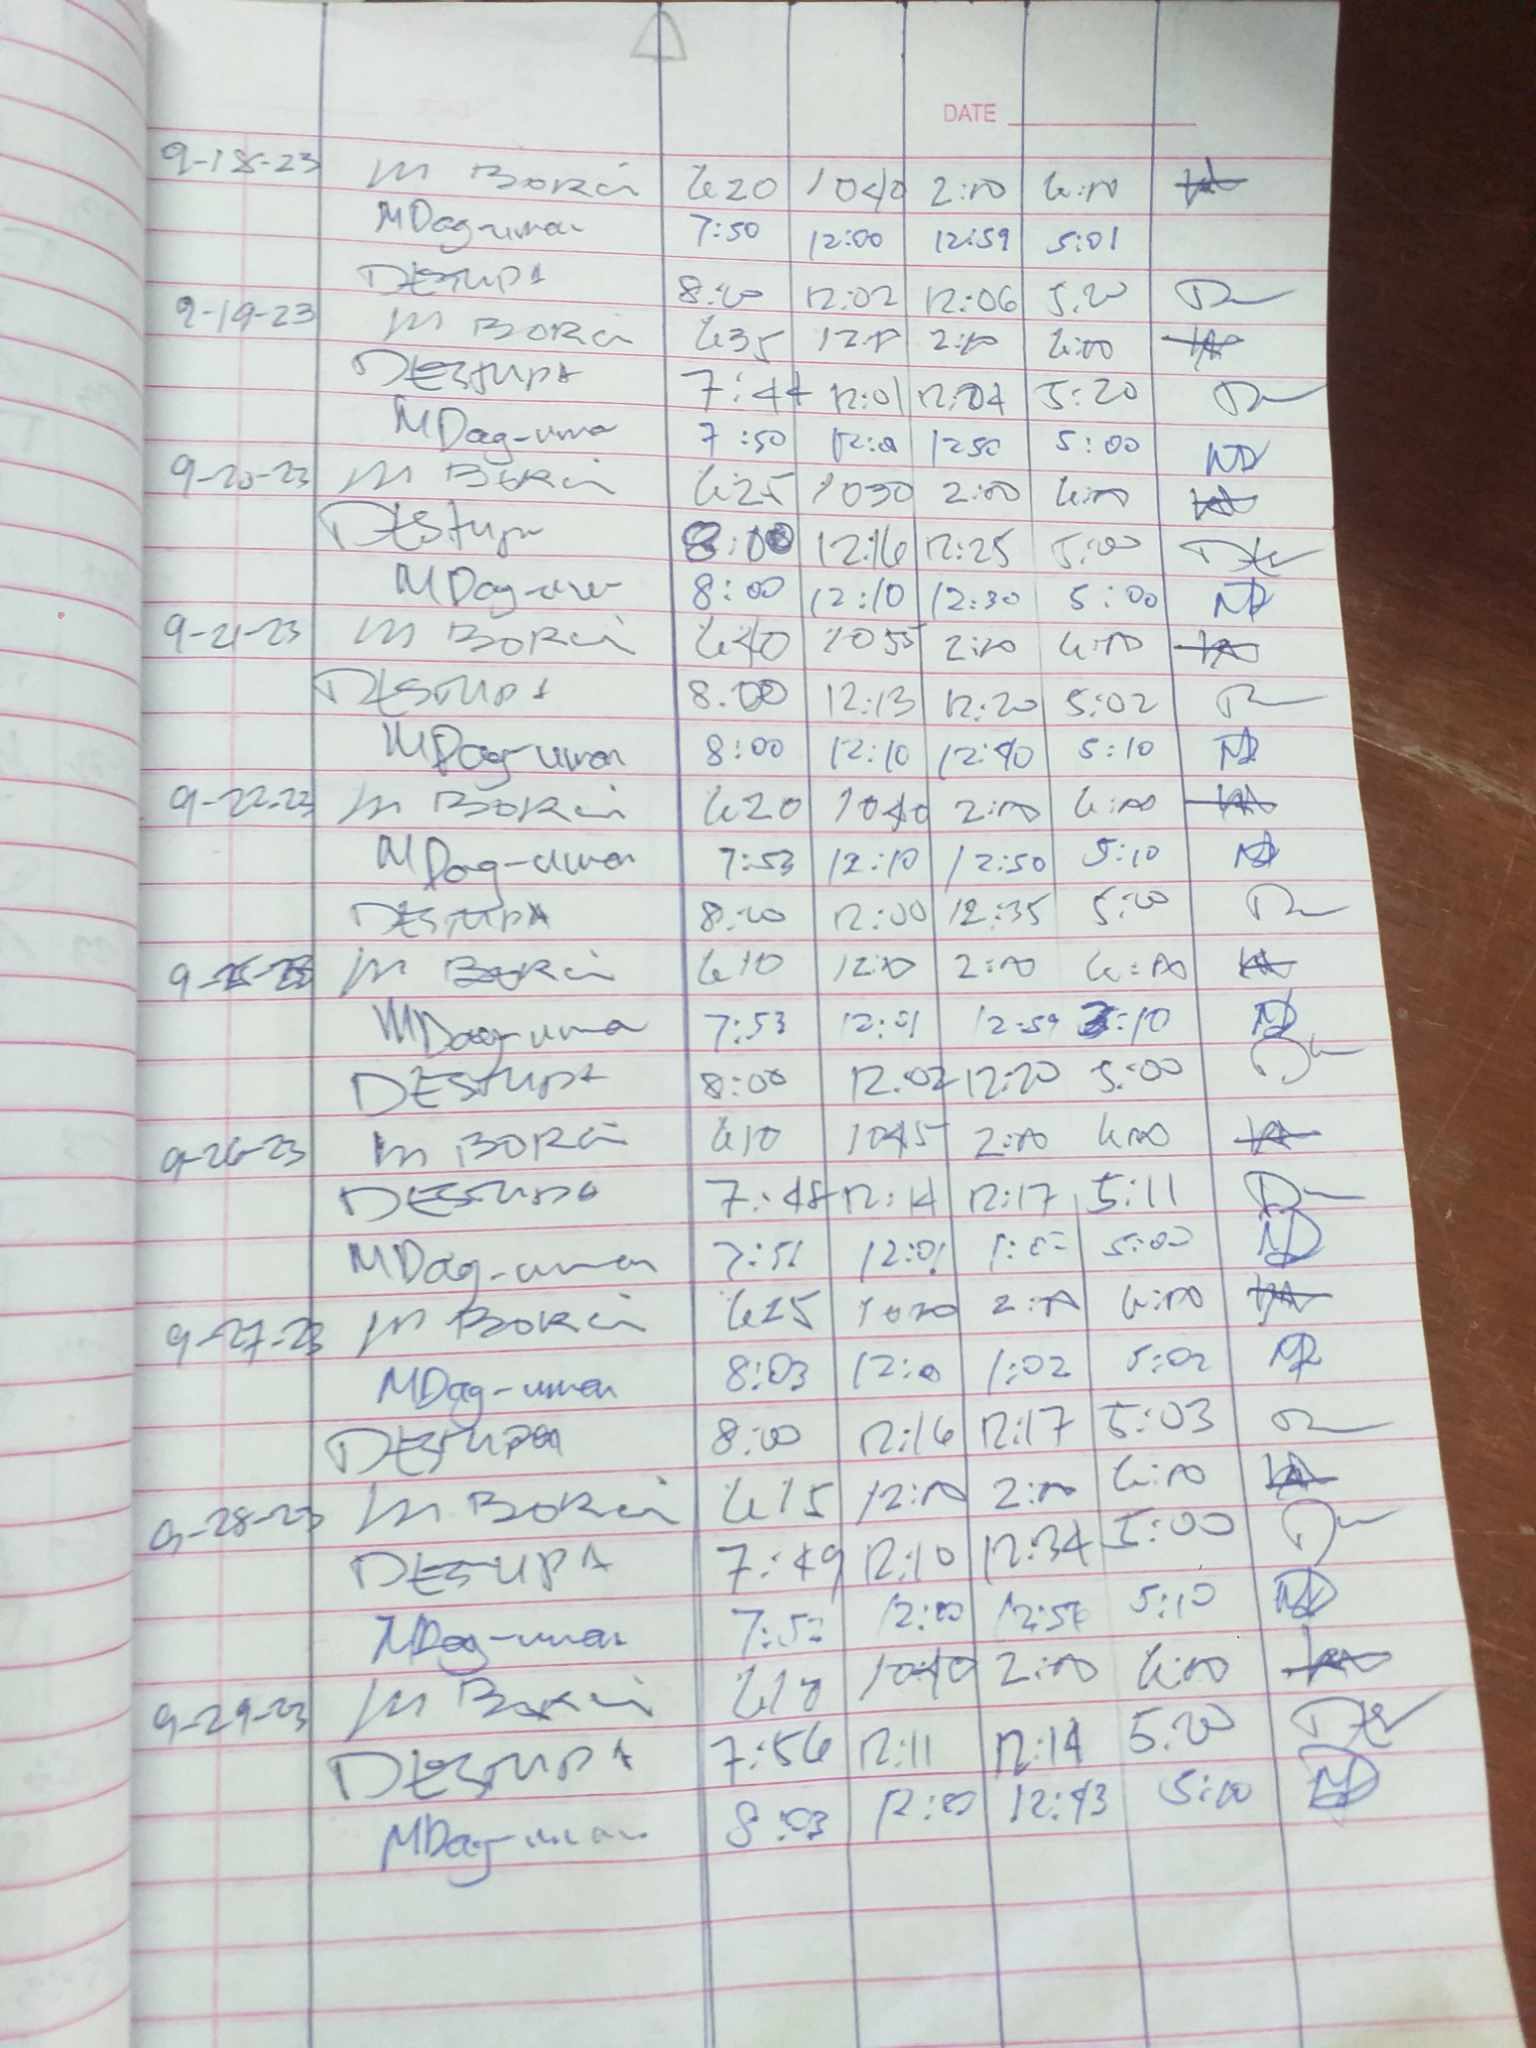 DATE
9-18-23 M Borci 620 1040 2:00 6:00
MDag-uman 7:50 12:00 12:59 5:01
DESTUPA 8:00 12:02 12:06 5:20
9-19-23 M Borci 635 2:00 6:00
DESTUPA 7:44 12:01 12:04 5:20
MDag-uman 7:50 1250 5:00 MD
9-20-23 M Borci 625 1030 2:00 6:00
DEStupa 8:00 12:16 12:25 5:00
MDag-uman 8:00 12:10 12:30 5:00 MD
9-21-23 M Borci 640 1055 2:00 6:00
DESTUPA 8:00 12:13 12:20 5:02
MDag-uman 8:00 12:10 12:40 5:10 MD
9-22-23 M Borci 620 1040 2:00 6:00
MDag-uman 7:53 12:10 12:50 5:10 MD
DESTUPA 8:00 12:00 12:35 5:00
M Borci 610 2:00 6:00
MDag-uman 7:53 12:01 12:59 5:10 MD
DESTUPA 8:00 12:02 12:20 5:00
9-26-23 M Borci 610 1045 2:00 6:00
DESTUPA 7:48 12:14 12:17 5:11
MDag-uman 7:51 12:01 5:00 MD
9-27-23 M Borci 625 1020 2:00 6:00
MDag-uman 8:03 1:02 5:02 MD
DESTUPA 8:00 12:16 12:17 5:03
9-28-23 M Borci 615 12:00 2:00 6:00
DESTUPA 7:49 12:10 12:34 5:00
MDag-uman 12:00 5:10 MD
9-29-23 M Borci 610 10:40 2:00 6:00
DESTUPA 7:56 12:11 12:14 5:00
MDag-uman 8:03 12:00 12:43 5:00 MD